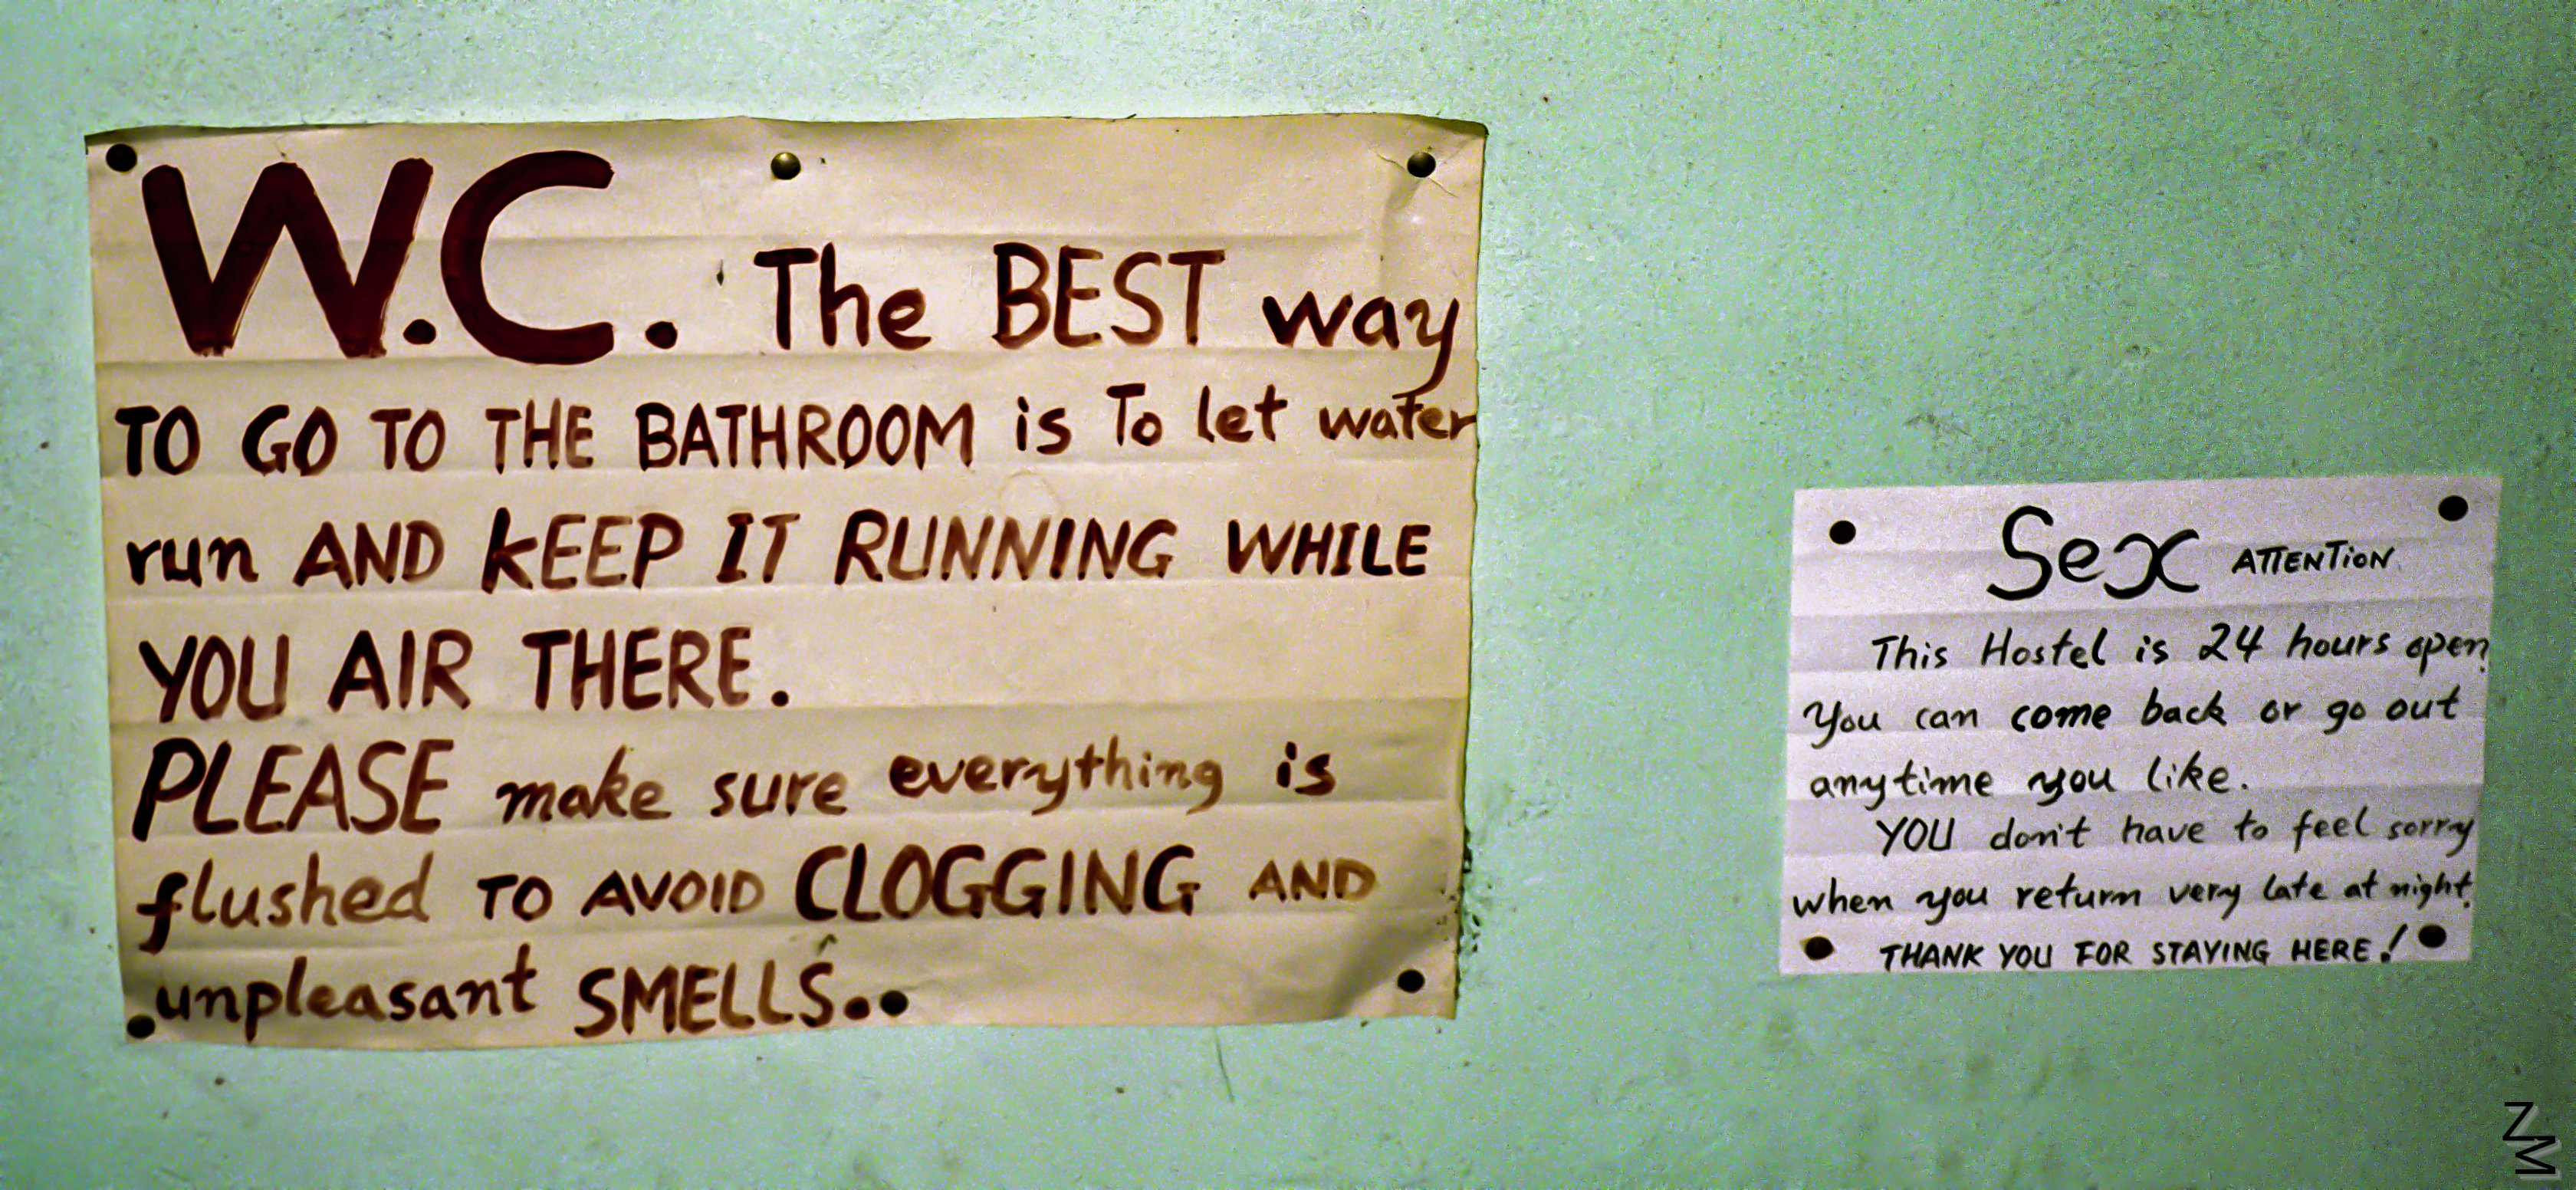 W.C. The BEST way
TO GO TO THE BATHROOM is To let water
run AND KEEP IT RUNNING WHILE
YOU AIR THERE.
PLEASE make sure everything is
flushed TO AVOID CLOGGING AND
unpleasant SMELLS..
Sex ATTENTION
This Hostel is 24 hours open.
You can come back or go out
anytime you like.
YOU don't have to feel sorry
when you return very late at night.
THANK YOU FOR STAYING HERE!
NM